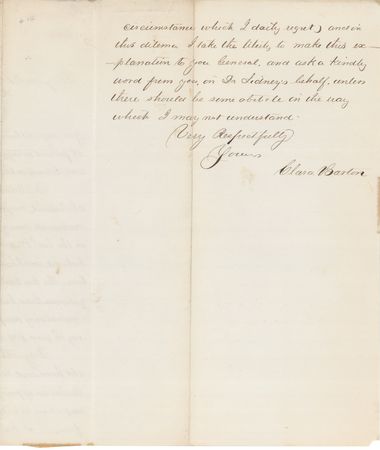 circumstance which I daily regret) and in
this dilema I take the liberty to make this ex-
-planation to you General, and ask a kindly
word from you, on Dr Sidney's behalf, unless
there should be some obstacle in the way
which I may not understand.
Very Respectfully
Yours
Clara Barton